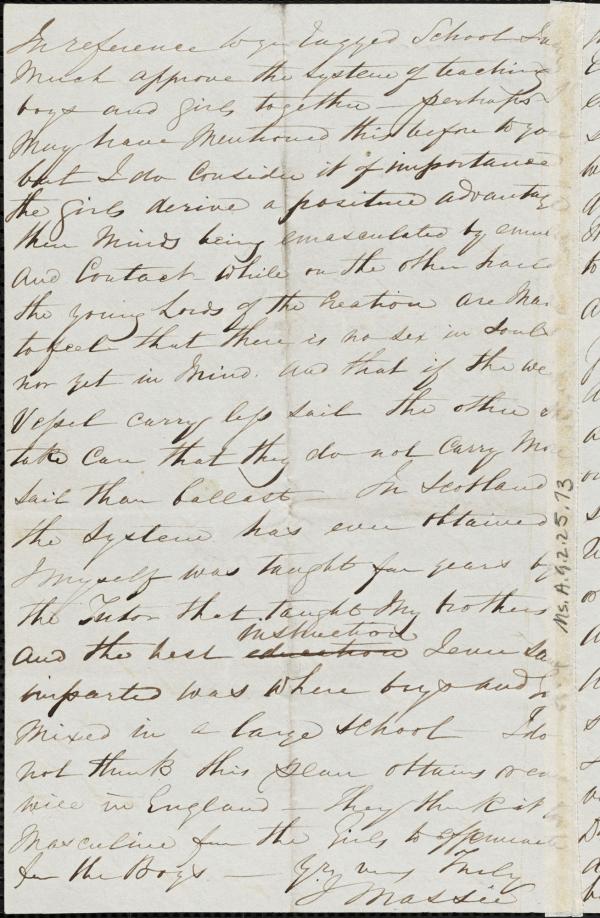 In reference to yr Ragged School I
Much approve the system of teaching
boys and girls together – perhaps
May have Mentioned this before to yo
but I do Consider it of importance
the girls derive a positive advantage
their Minds being emasculated by
And Contact – While on the other hand
the young Lords of the Creation are
to feel that there is no sex in Soul
nor yet in Mind. and that if the we
Vessel carry less sail the other
take Care that they do not Carry Mo
sail than ballast – In Scotland
the System has ever obtained
I myself was taught for years by
the Tutor that taught My brothers
instruction
And the best education I ever sa
imparted was where boys and
Mixed in a large school I do
not think this plan obtains
in England – They think it
Masculine for the Girls to effeminate
for the Boys – yrs very Truly
J Massie
Ms. A.9.2.25.73